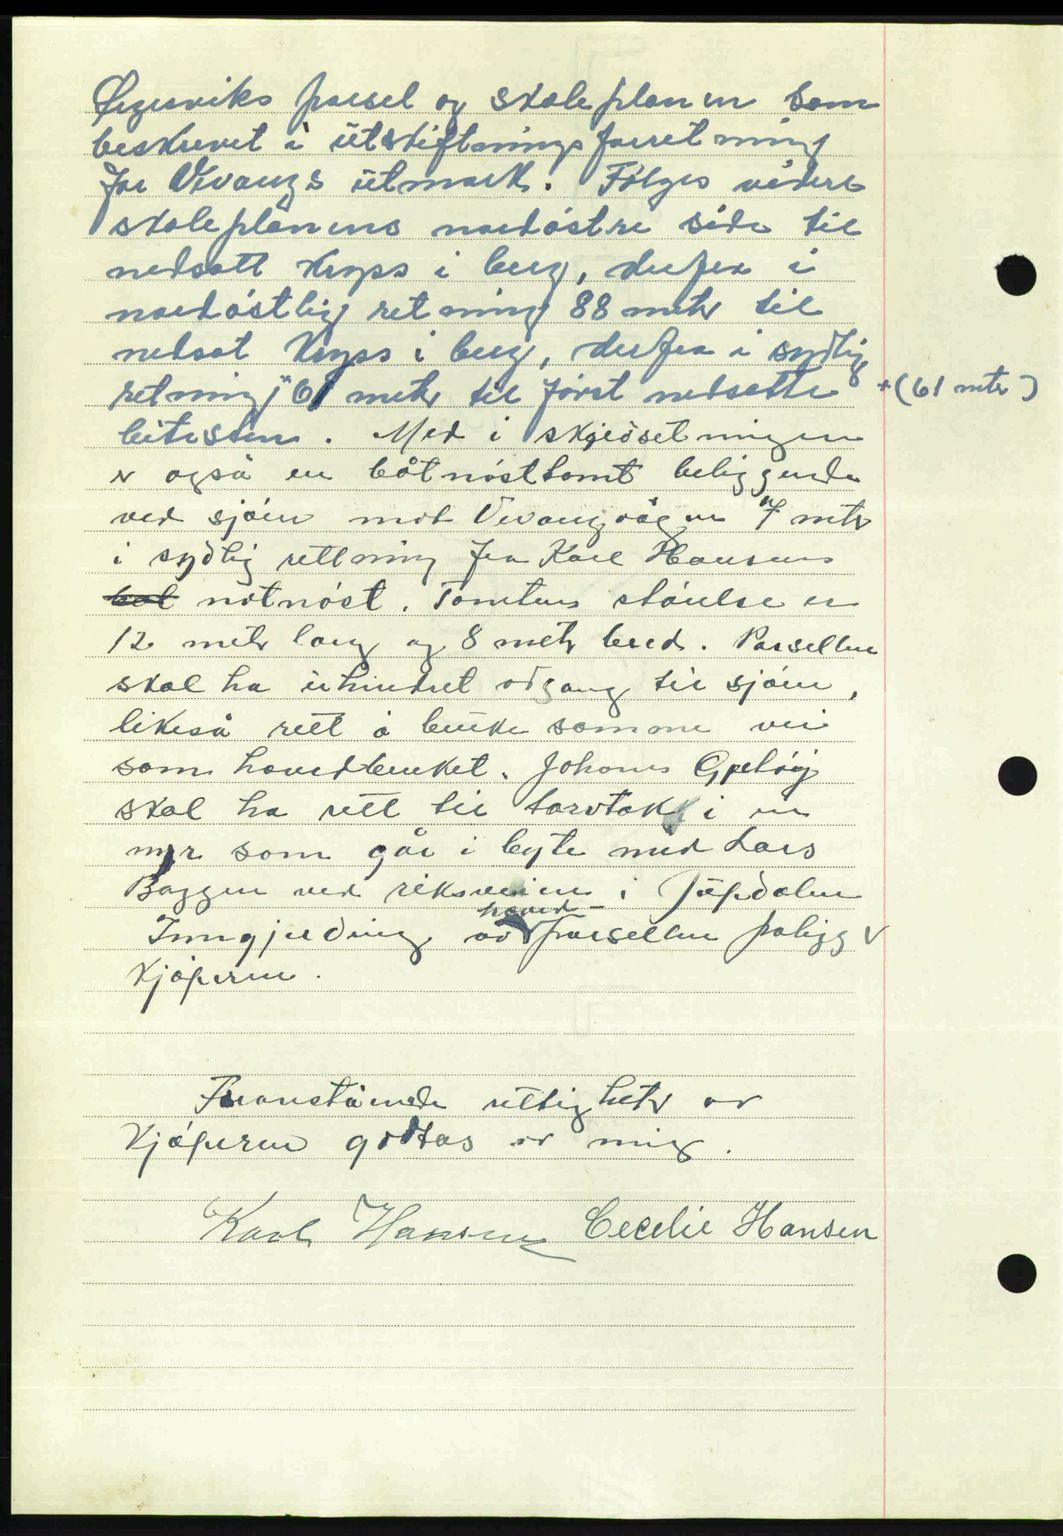 Øyesviks parsel og skoleplanen som
beskrevet i utskiftningsforretning
for Vevangs utmark. Følges videre
skoleplanens nordøstre side til
nedsatt kryss i berg, derfra i
nordøstlig retning 88 metr til
nedsat kryss i berg, derfra i sydlig
retning 61 metr til først nedsatte +(61 mtr)
bitesten. Med i skjødsetningen
er også en båtnøsttomt beliggende
ved sjøen mot Vevangvågen 7 metr
i sydlig rettning fra Karl Hansens
bat notnøst. Tomtens størelse er
12 metr lang og 8 metr bred. Parsellen
skal ha uhindret adgang til sjøen,
likeså rett å bruke samme vei
som hovedbruket. Johans
skal ha rett til torvtak i en
myr som går i byte med Lars
Baggen ved riksveien i Júpdalen
Inngjerding av hoved-parsellen paligger
kjøperen.
Foranstående rettigheter av
kjøperen godtas av mig.
Karl Hansen Cecelie Hansen